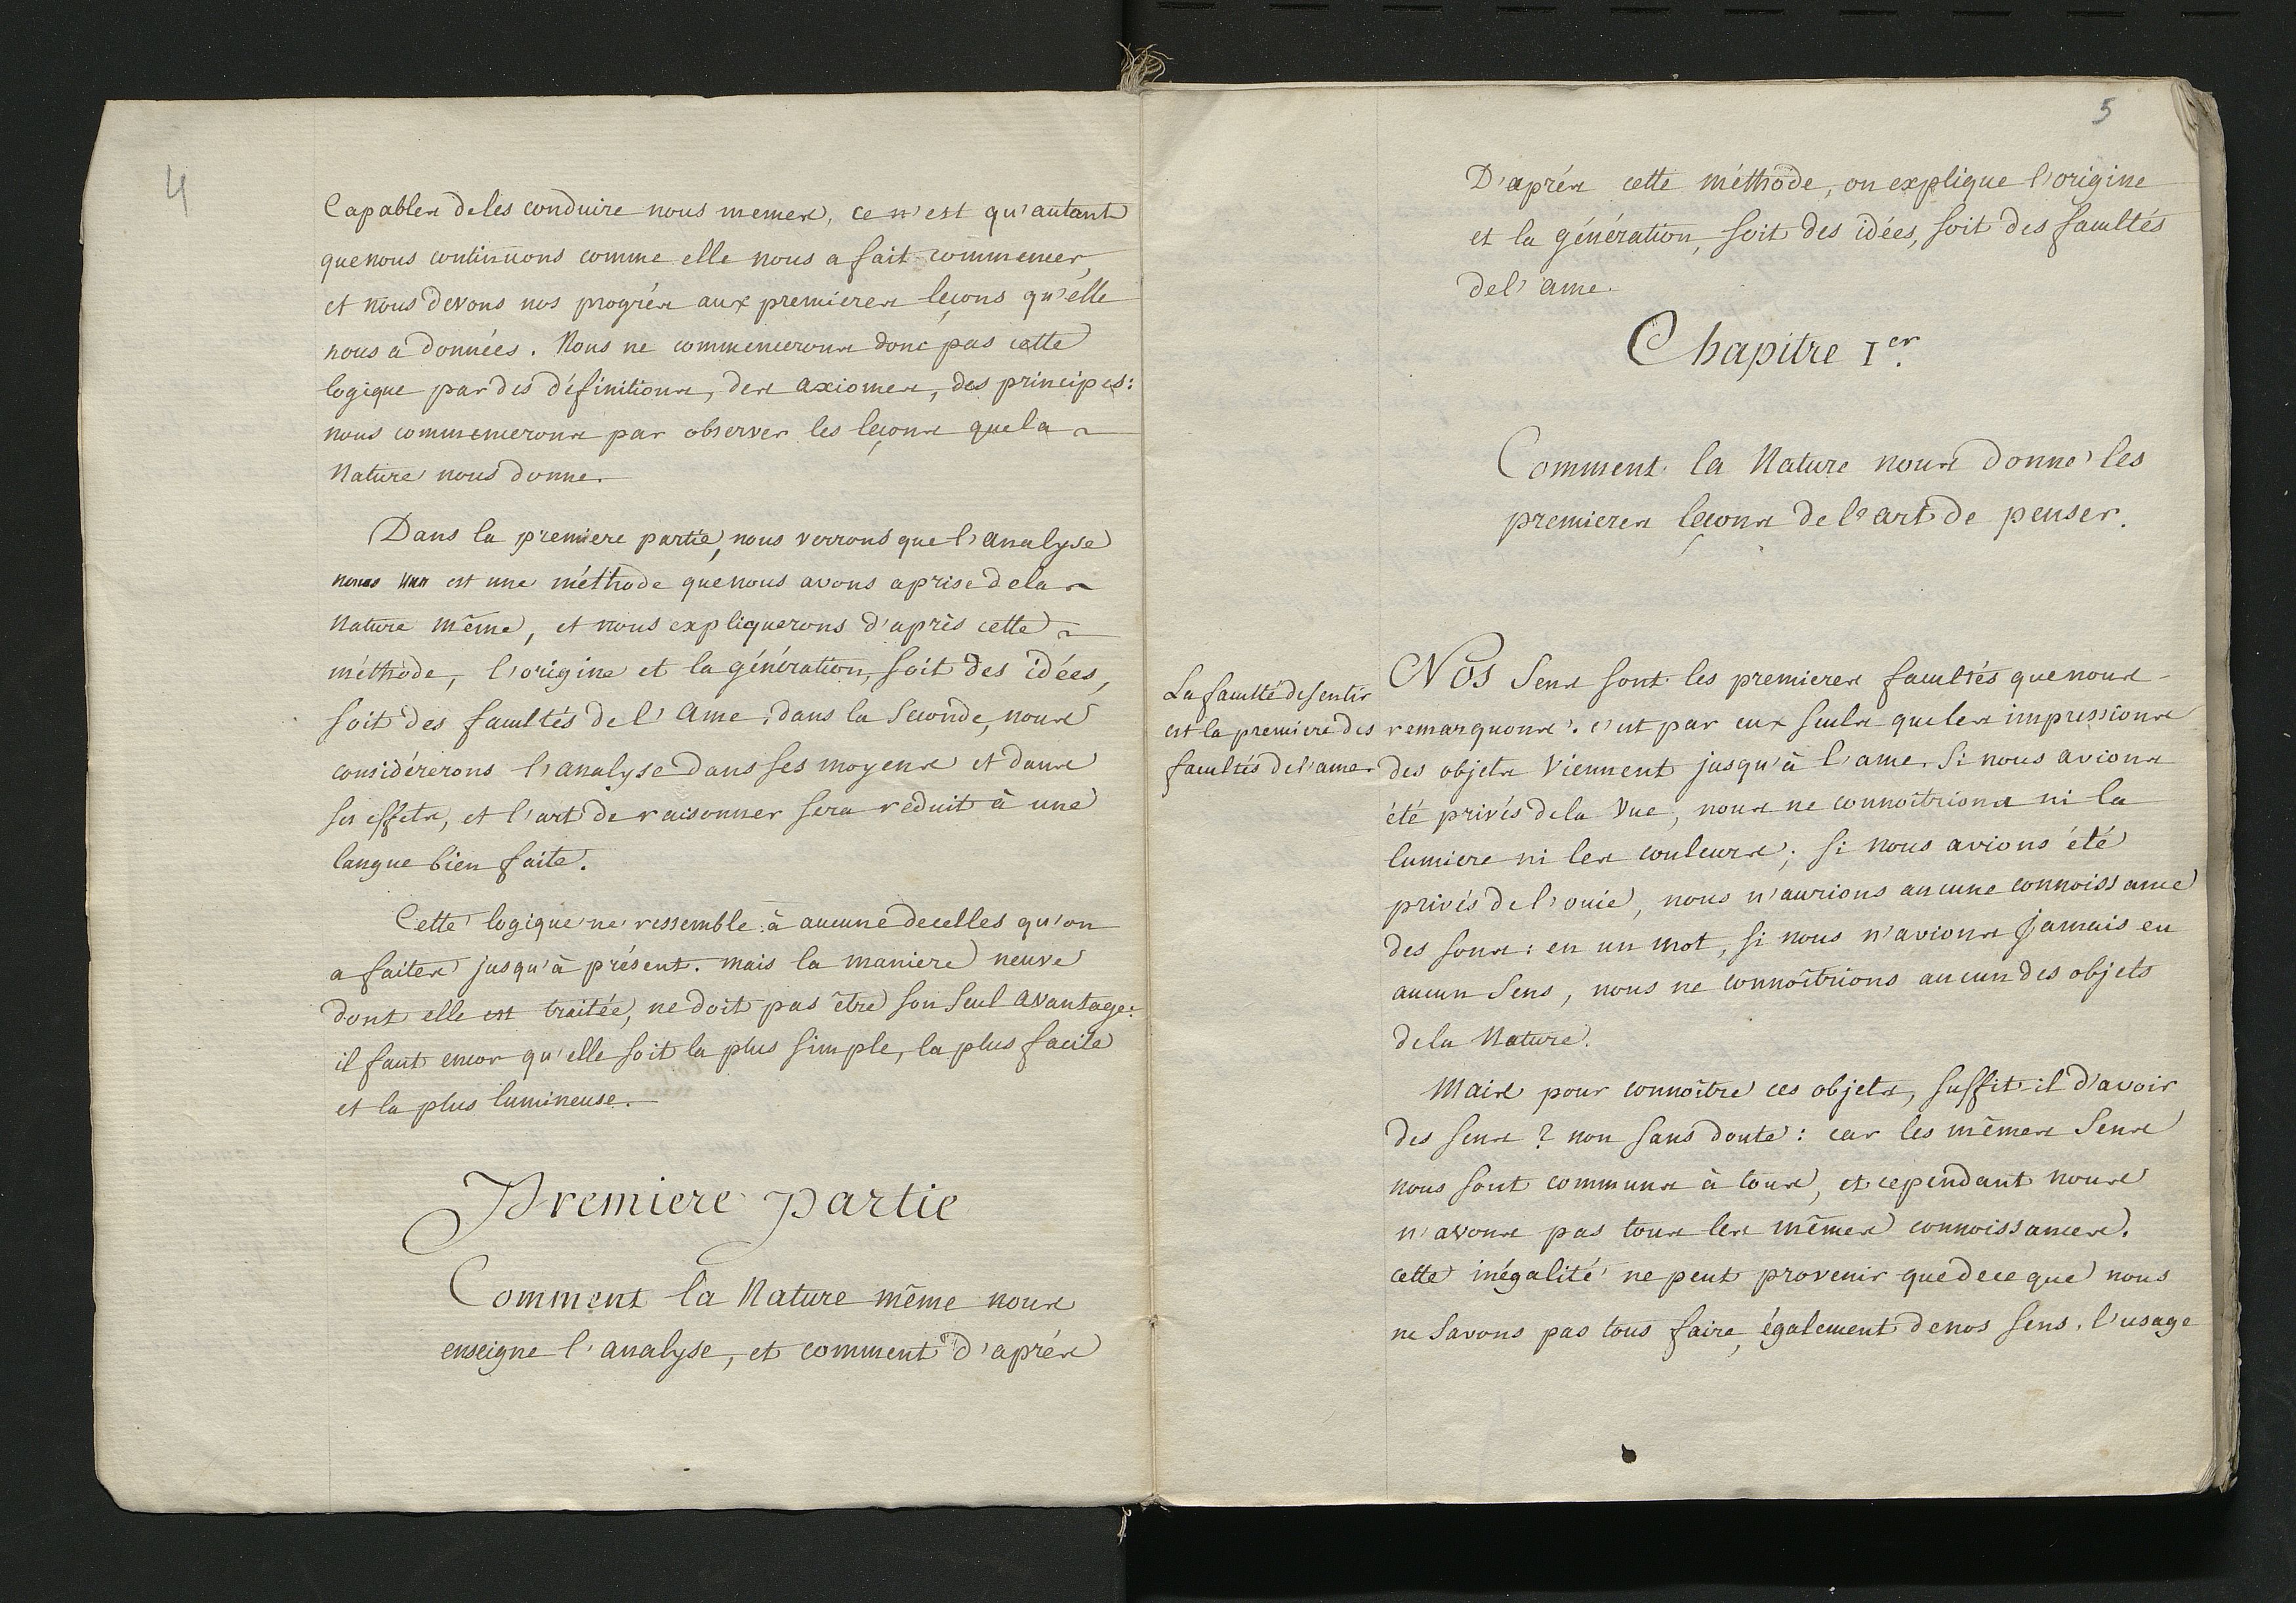 4
Capables de les conduire nous memes, ce n'est qu'autant
que nous continuons comme elle nous a fait commencer,
et nous devons nos progrés aux premieres leçons qu'elle
nous a données. Nous ne commencerons donc pas cette
logique par des définitions, des axiomes, des principes:
nous commencerons par observer les leçons que la
Nature nous donne.
Dans la premiere partie, nous verrons que l'analyse
est une méthode que nous avons aprise de la
Nature même, et nous expliquerons d'après cette
méthode, l'origine et la génération, soit des idées,
soit des facultés de l'Ame; dans la Seconde, nous
considérerons l'analyse dans ses moyens et dans
ses effets, et l'art de raisonner sera réduit à une
langue bien faite.
Cette logique ne ressemble à aucune de celles qu'on
a faites jusqu'à présent. mais la maniere neuve
dont elle est traitée, ne doit pas être son Seul avantage:
il faut encor qu'elle soit la plus simple, la plus facile
et la plus lumineuse.
Premiere partie
Comment la Nature même nous
enseigne l'analyse, et comment d'aprés
5
D'aprés cette méthode, on explique l'origine
et la génération, soit des idées, soit des facultés
de l'ame.
Chapitre 1er.
Comment la Nature nous donne les
premieres leçons de l'art de penser.
La faculté de sentir
est la premiere des
facultés de l'ame.
Nos Sens sont les premieres facultés que nous
remarquons. c'est par eux seuls que les impressions
des objets Viennent jusqu'à l'ame. Si nous avions
été privés de la Vue, nous ne connoîtrions ni la
lumiere ni les couleurs; si nous avions été
privés de l'ouie, nous n'aurions aucune connoissance
des sons: en un mot, si nous n'avions jamais eu
aucun Sens, nous ne connoîtrions aucun des objets
de la Nature.
Mais pour connoître ces objets, suffit-il d'avoir
des sens? non sans doute: car les mêmes Sens
nous sont communs à tous, et cependant nous
n'avons pas tous les mêmes connoissances.
cette inégalité ne peut provenir que de ce que nous
ne Savons pas tous faire, également de nos sens, l'usage